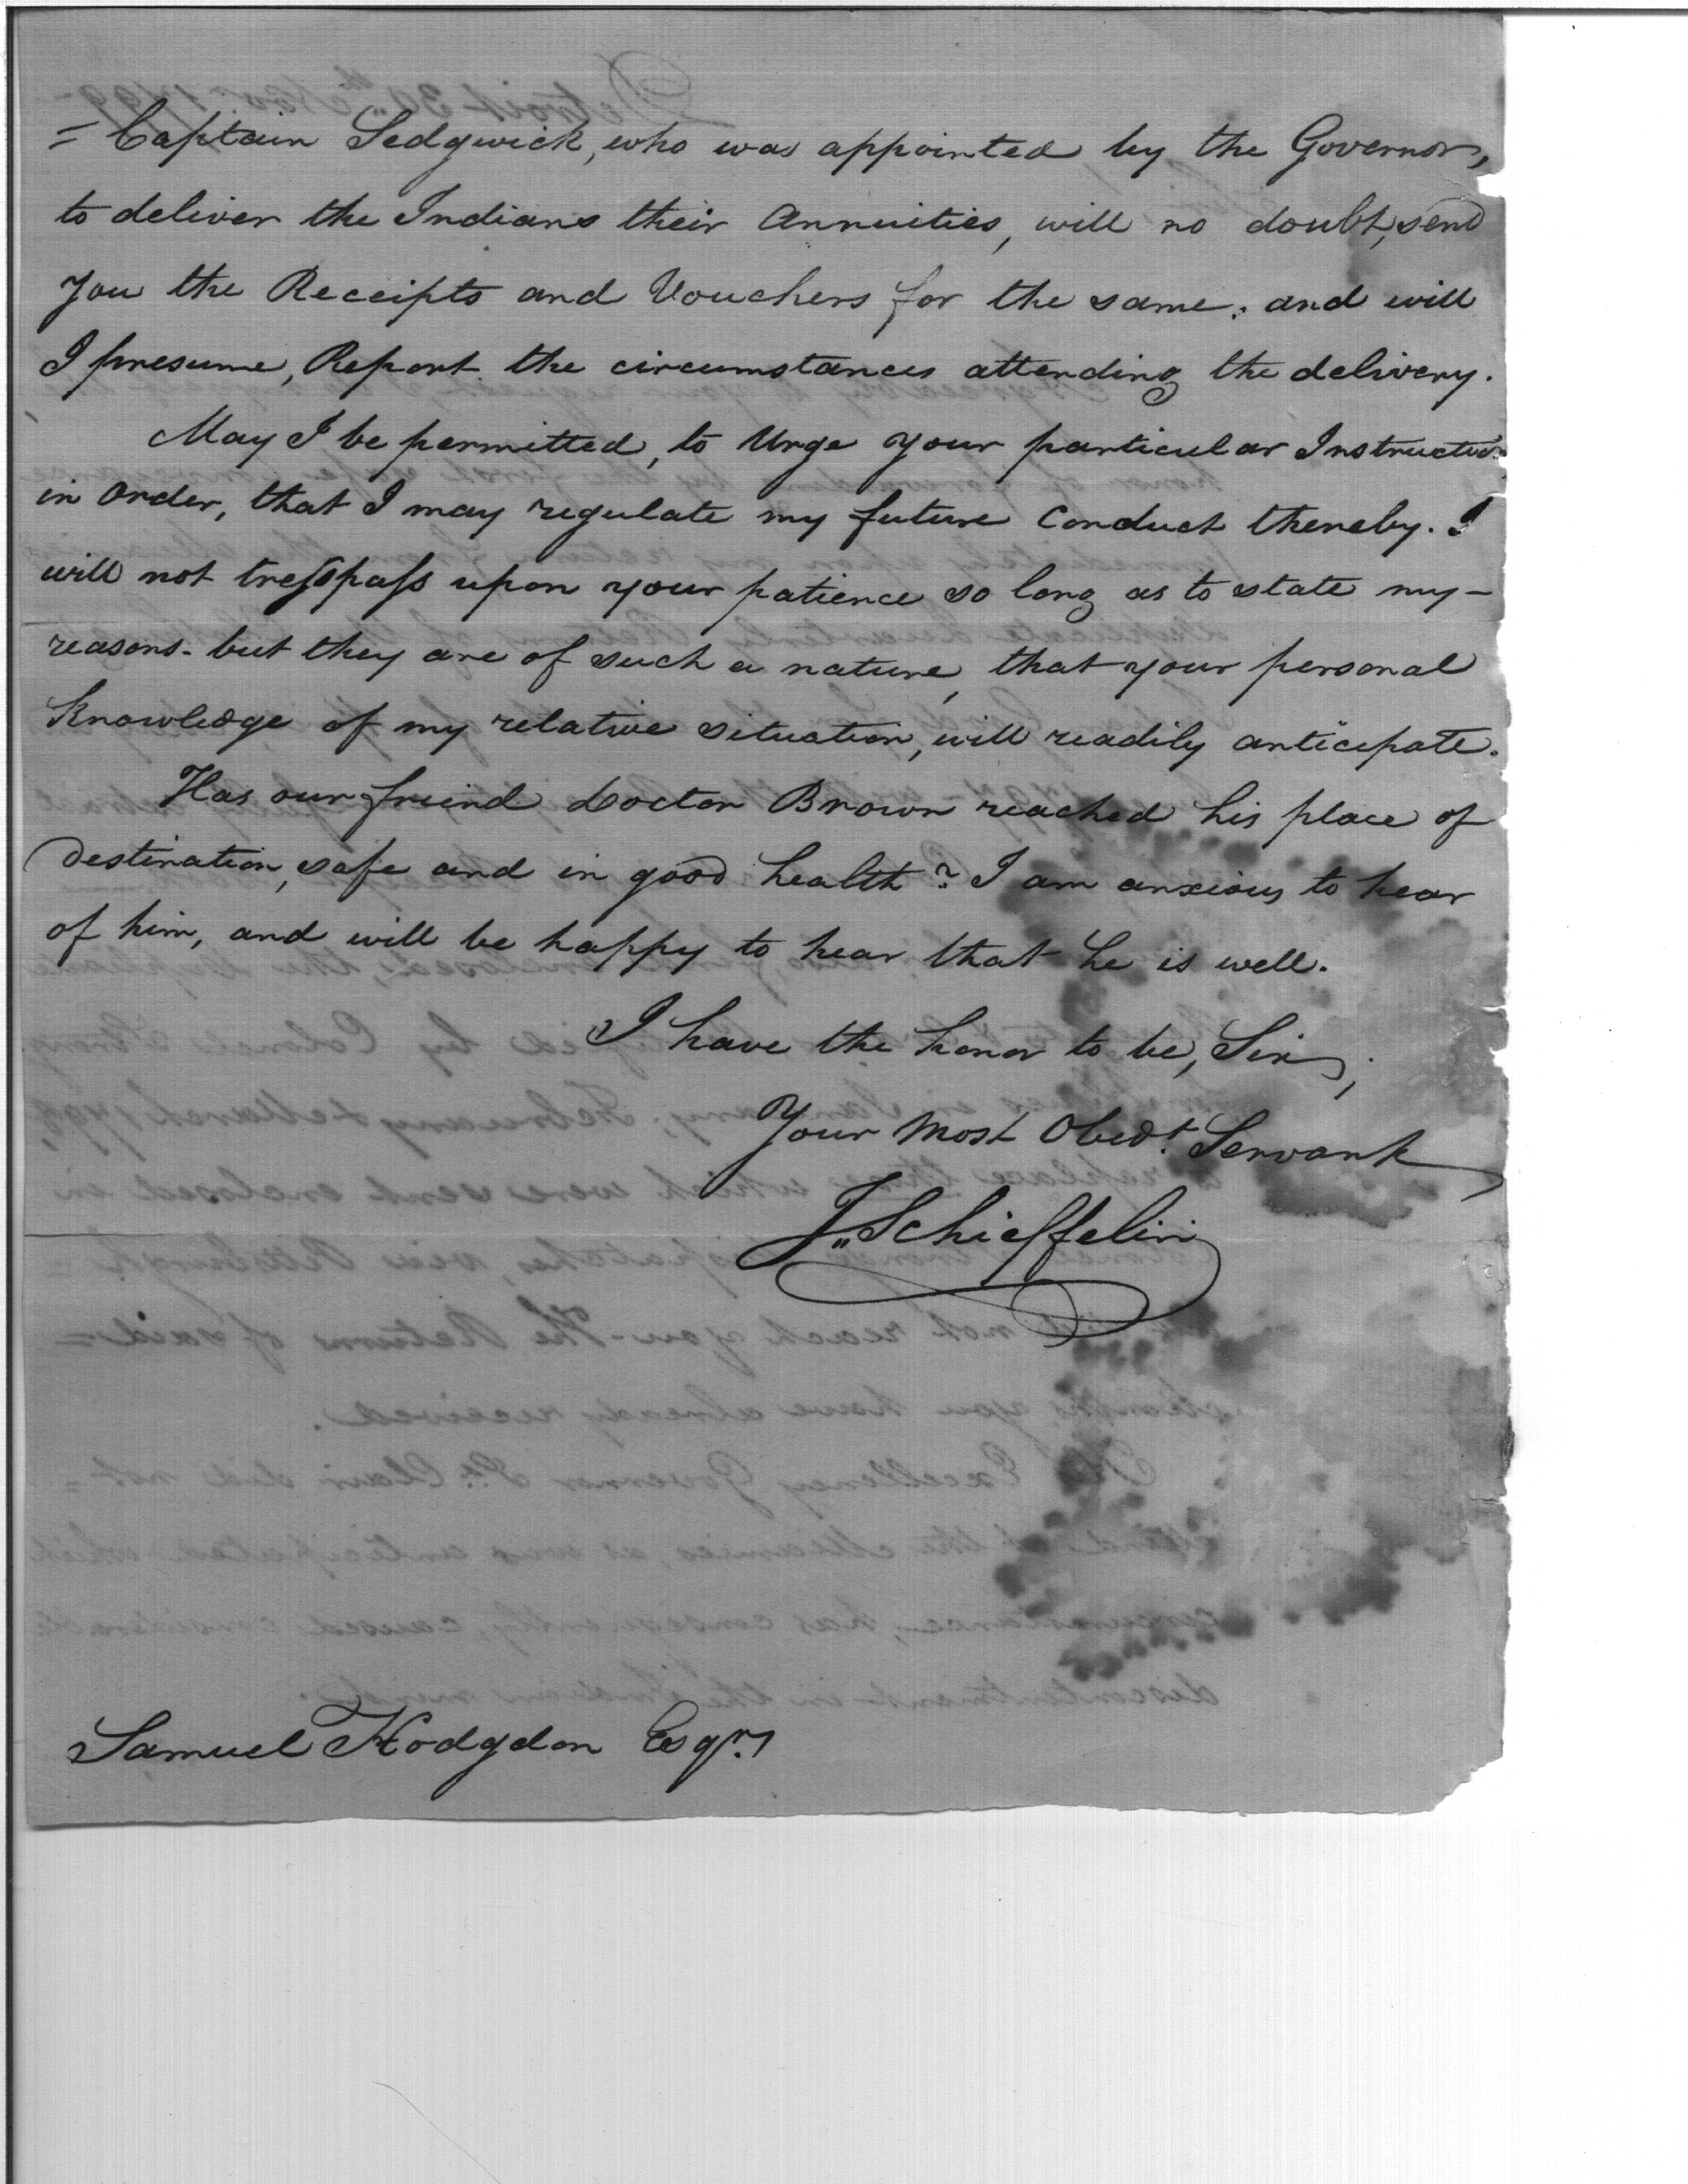 = Captain Sedgwick, who was appointed by the Governor,
to deliver the Indians their Annuities, will no doubt, send
you the Receipts and Vouchers for the same; and will
I presume, Report the circumstances attending the delivery.
May I be permitted, to Urge your particular Instructions
in Order, that I may regulate my future Conduct thereby. I
will not tresspass upon your patience so long as to state my -
reasons - but they are of such a nature, that your personal
Knowledge of my relative situation, will readily anticipate.
Has our friend Doctor Brown reached his place of
destination, safe and in good health? I am anxious to hear
of him, and will be happy to hear that he is well.
I have the honor to be, Sir,
Your Most Obedt. Servant
J,, Schieffelin
Samuel Hodgdon Esqr.